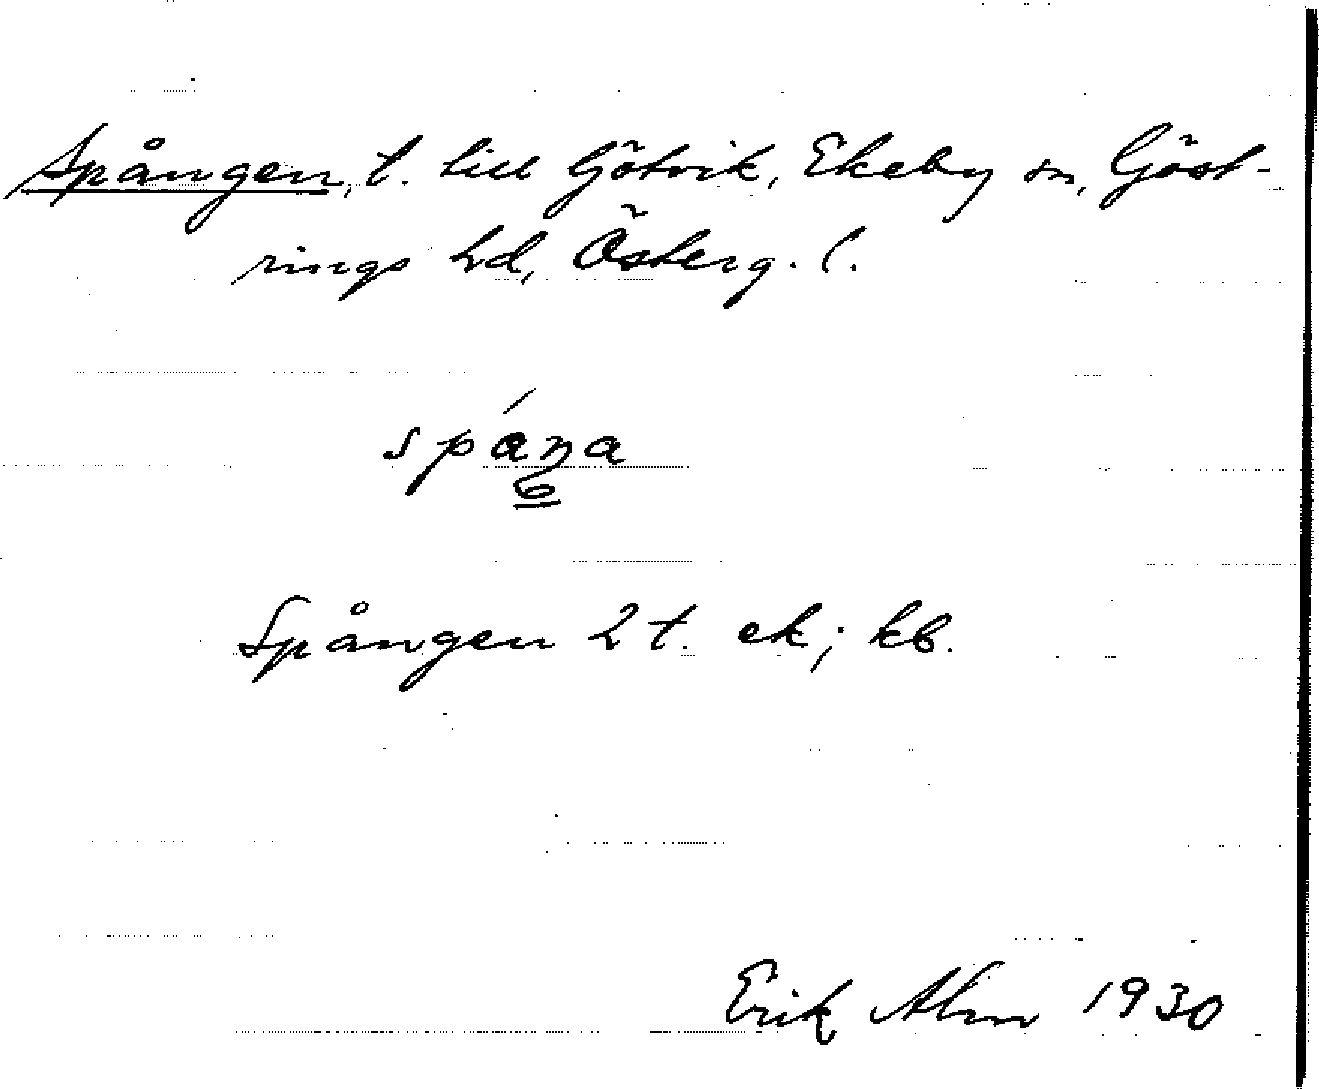 Spången, t. till Götvik, Ekeby sn, Göst-
rings hd, Österg. l.
spáŋa
6
Spången 2 t. ek; kb.
Erik Alm 1930